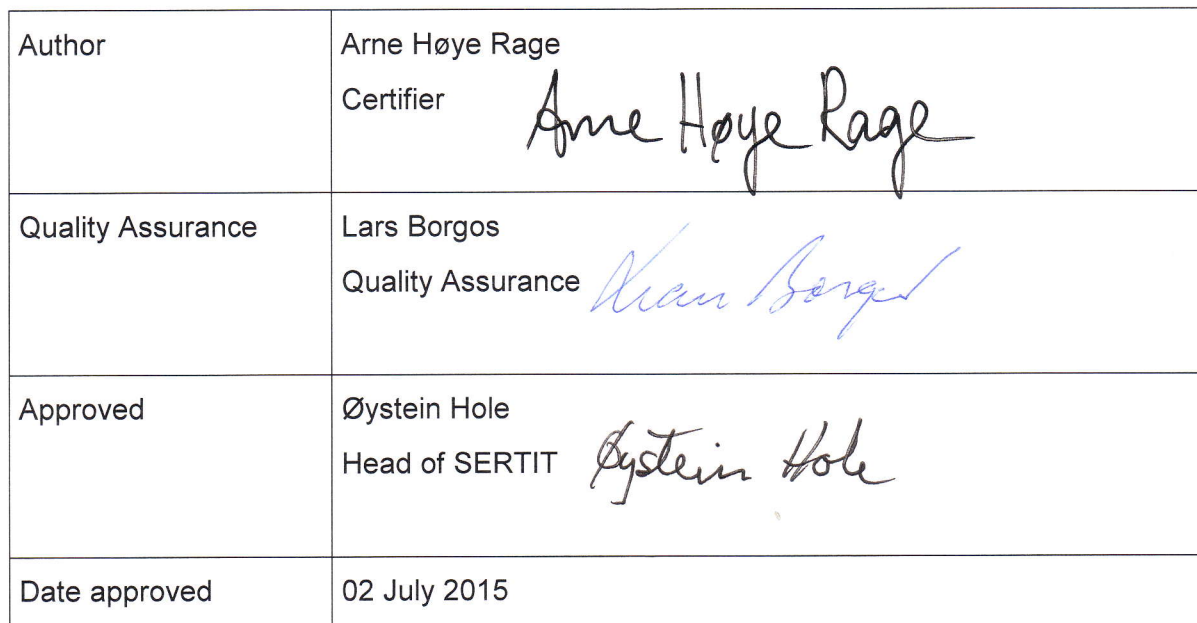 Author
Arne Høye Rage
Certifier
Arne Høye Rage
Quality Assurance
Lars Borgos
Quality Assurance
Approved
Øystein Hole
Head of SERTIT
Øystein Hole
Date approved
02 July 2015